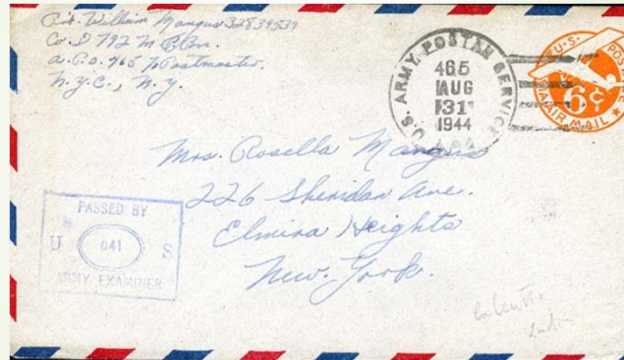 Pvt. William Mangus 32839539
Co. D 792 M.P. Bn.
A.P.O. 465 % Postmaster.
N.Y.C., N.Y.
U.S. ARMY POSTAL SERVICE
465
AUG
31
1944
U.S. POSTAGE
6¢
VIA AIR MAIL
Mrs. Rosella Mangus
226 Sheridan Ave.
Elmira Heights
New York.
PASSED BY
U 041 S
ARMY EXAMINER
Calcutta
India